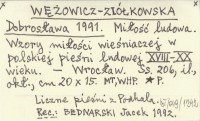 WĘŻOWICZ-ZIÓŁKOWSKA
Dobrosława 1991. Miłość ludowa.
Wzory miłości wieśniaczej w
polskiej pieśni ludowej XVIII-XX
wieku. — Wrocław. Ss. 206, il.,
okł., cm 20 x 15. MT, WHP.
Liczne pieśni z Podhala.
Rec.: BEDNARSKI Jacek 1992.